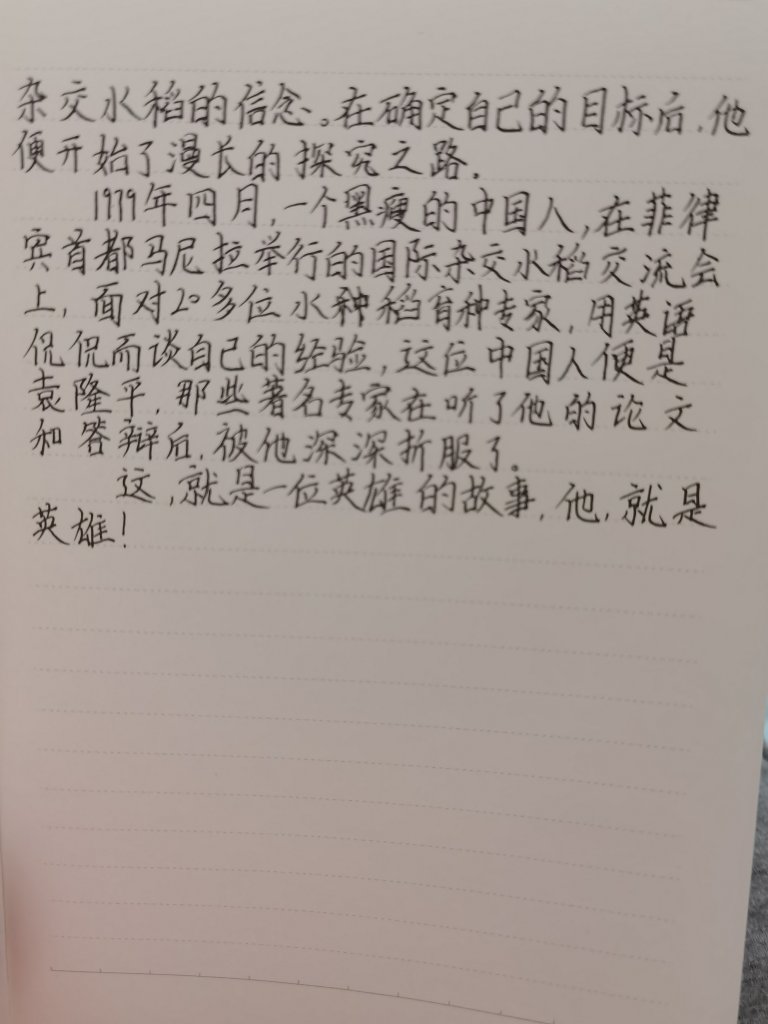 杂交水稻的信念。在确定自己的目标后,他
便开始了漫长的探究之路.
1979年四月,一个黑瘦的中国人,在菲律
宾首都马尼拉举行的国际杂交水稻交流会
上,面对20多位水种稻育种专家,用英语
侃侃而谈自己的经验,这位中国人便是
袁隆平,那些著名专家在听了他的论文
和答辩后,被他深深折服了。
这,就是一位英雄的故事,他,就是
英雄!